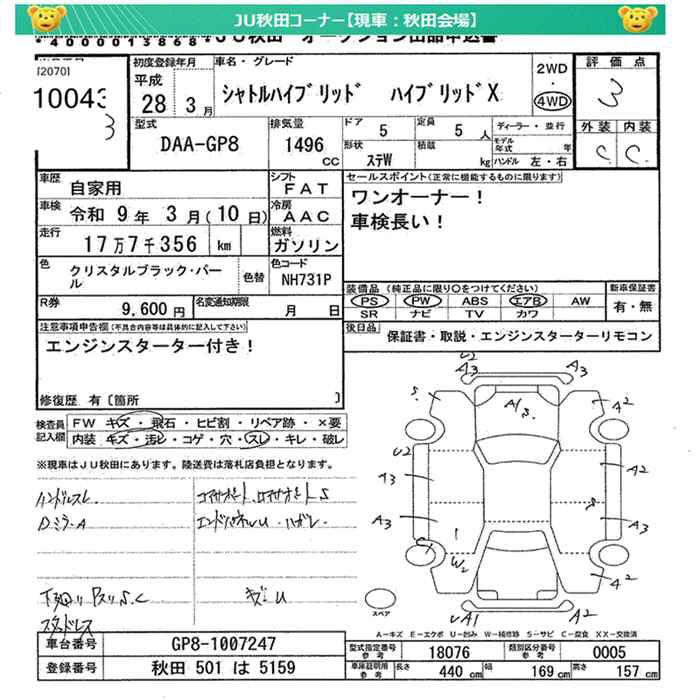 JU秋田コーナー【現車：秋田会場】
*4000013868* JU秋田 オークション出品申込書
(2070)
10043
3
初度登録年月
平成
28 3月
車名・グレード
シャトルハイブリッド ハイブリッドX
2WD
・
4WD
評価点
3
外装 内装
C C
型式
DAA-GP8
排気量
1496
CC
ドア
5
定員
5 人
形状
ステW
積載
kg
ディーラー・並行
モデル年式 年
ハンドル 左・右
車歴
自家用
シフト
FAT
車検
令和 9年 3月(10日)
冷房
AAC
走行
17万7千356 km
燃料
ガソリン
色
クリスタルブラック・パール
色替
色コード
NH731P
R券
9,600円
名変通知期限
月 日
セールスポイント(正常に機能するものに限ります)
ワンオーナー！
車検長い！
装備品(純正品に限り○をつけてください)
PS PW ABS エアB AW
SR ナビ TV カワ
新車保証書
有・無
後日品
保証書・取説・エンジンスターターリモコン
注意事項申告欄(不具合内容等は具体的に記入して下さい)
エンジンスターター付き！
修復歴 有〔箇所 〕
検査員記入欄
FW キズ・飛石・ヒビ割・リペア跡・×要
内装 キズ・汚レ・コゲ・穴・スレ・キレ・破レ
※現車はJU秋田にあります。陸送費は落札店負担となります。
ハンドルスレ
Dミラ-A
エンドパネルU・ハガレ
下廻り
S.C
スタッドレス
キズU
U2
A3
A3
S
A1
S
A2
U2
A3
A2
A3
A3
S
C
W2
A2
UA1
A2
スペア
A-キズ E-エクボ U-凹み W-補修跡 S-サビ C-腐食 XX-交換済
車台番号
GP8-1007247
登録番号
秋田 501 は 5159
型式指定番号
参考
18076
類別区分番号
参考
0005
車庫証明用
参考
長さ
440 cm
幅
169 cm
高さ
157 cm